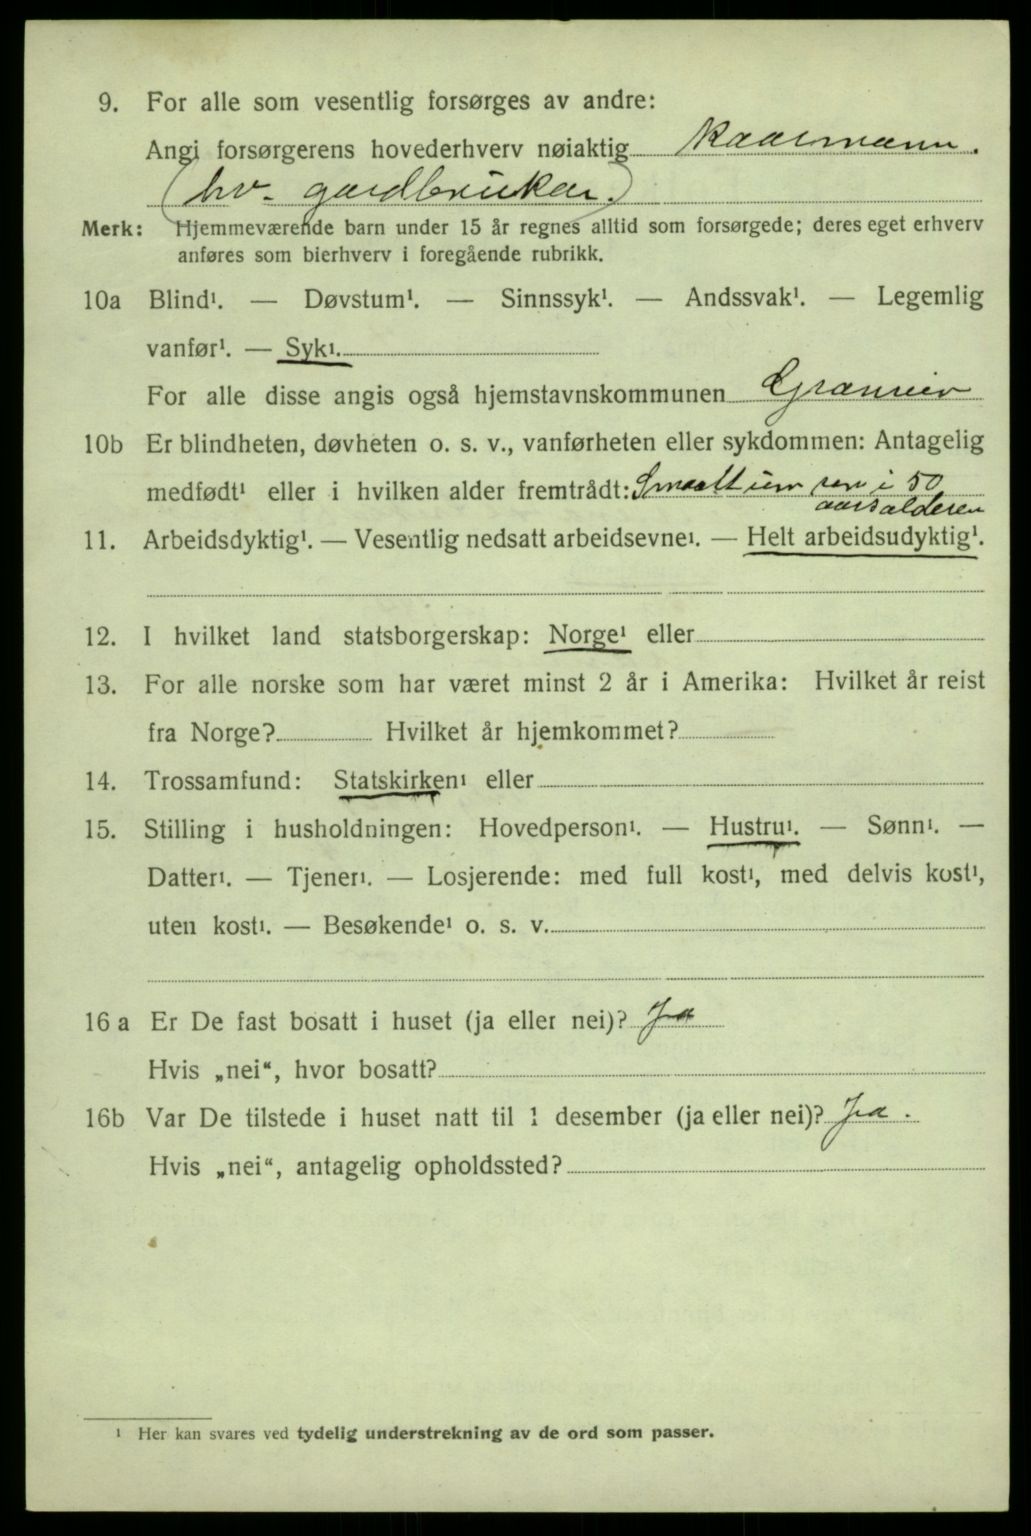 9. For alle som vesentlig forsørges av andre:
Angi forsørgerens hovederhverv nøiaktig kaarmann.
(hv. gardbrukar.)
Merk: Hjemmeværende barn under 15 år regnes alltid som forsørgede; deres eget erhverv
anføres som bierhverv i foregående rubrikk.
10a Blind¹. — Døvstum¹. — Sinnssyk¹. — Andssvak¹. — Legemlig
vanfør¹. — Syk¹.
For alle disse angis også hjemstavnskommunen
10b Er blindheten, døvheten o. s. v., vanførheten eller sykdommen: Antagelig
medfødt¹ eller i hvilken alder fremtrådt: i 50
aarsalderen
11. Arbeidsdyktig¹. — Vesentlig nedsatt arbeidsevne¹. — Helt arbeidsudyktig¹.
12. I hvilket land statsborgerskap: Norge¹ eller
13. For alle norske som har været minst 2 år i Amerika: Hvilket år reist
fra Norge? Hvilket år hjemkommet?
14. Trossamfund: Statskirken¹ eller
15. Stilling i husholdningen: Hovedperson¹. — Hustru¹. — Sønn¹. —
Datter¹. — Tjener¹. — Losjerende: med full kost¹, med delvis kost¹,
uten kost¹. — Besøkende¹ o. s. v.
16 a Er De fast bosatt i huset (ja eller nei)? Ja
Hvis „nei“, hvor bosatt?
16b Var De tilstede i huset natt til 1 desember (ja eller nei)? Ja.
Hvis „nei“, antagelig opholdssted?
¹ Her kan svares ved tydelig understrekning av de ord som passer.